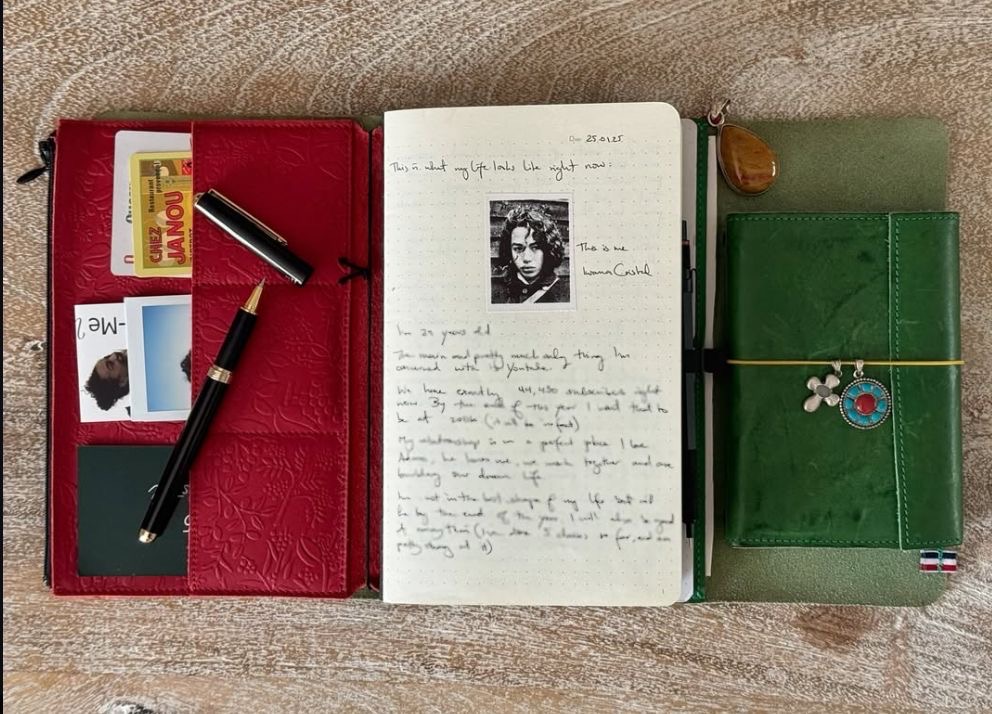 CHEZ
JANOU
Restaurant
-Me?
Date 25.01.25
This is what my life looks like right now:
This is me
Ivana Cristal
I'm 25 years old
The main and pretty much only thing I'm
concerned with is Youtube.
We have exactly 44,450 subscribers right
now. By the end of this year I want that to
be at 200k (it will be in fact)
My relationship is in a perfect place I love
he loves me, we work together and are
building our dream life
I'm not in the best shape of my life but will
be by the end of the year. I will also be good
at (I've done 5 classes so far, and am
pretty at it)
1